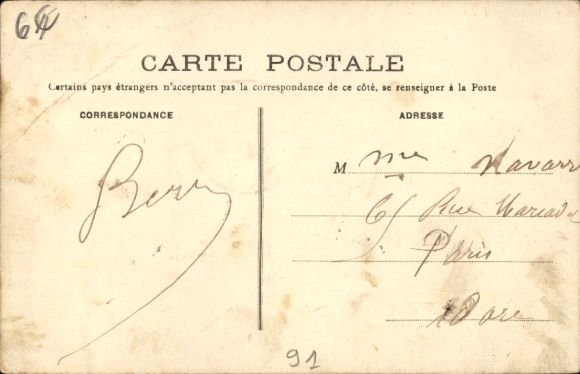 64
CARTE POSTALE
Certains pays étrangers n'acceptant pas la correspondance de ce côté, se renseigner à la Poste
CORRESPONDANCE
ADRESSE
M me Navarr
Rue
Paris
91